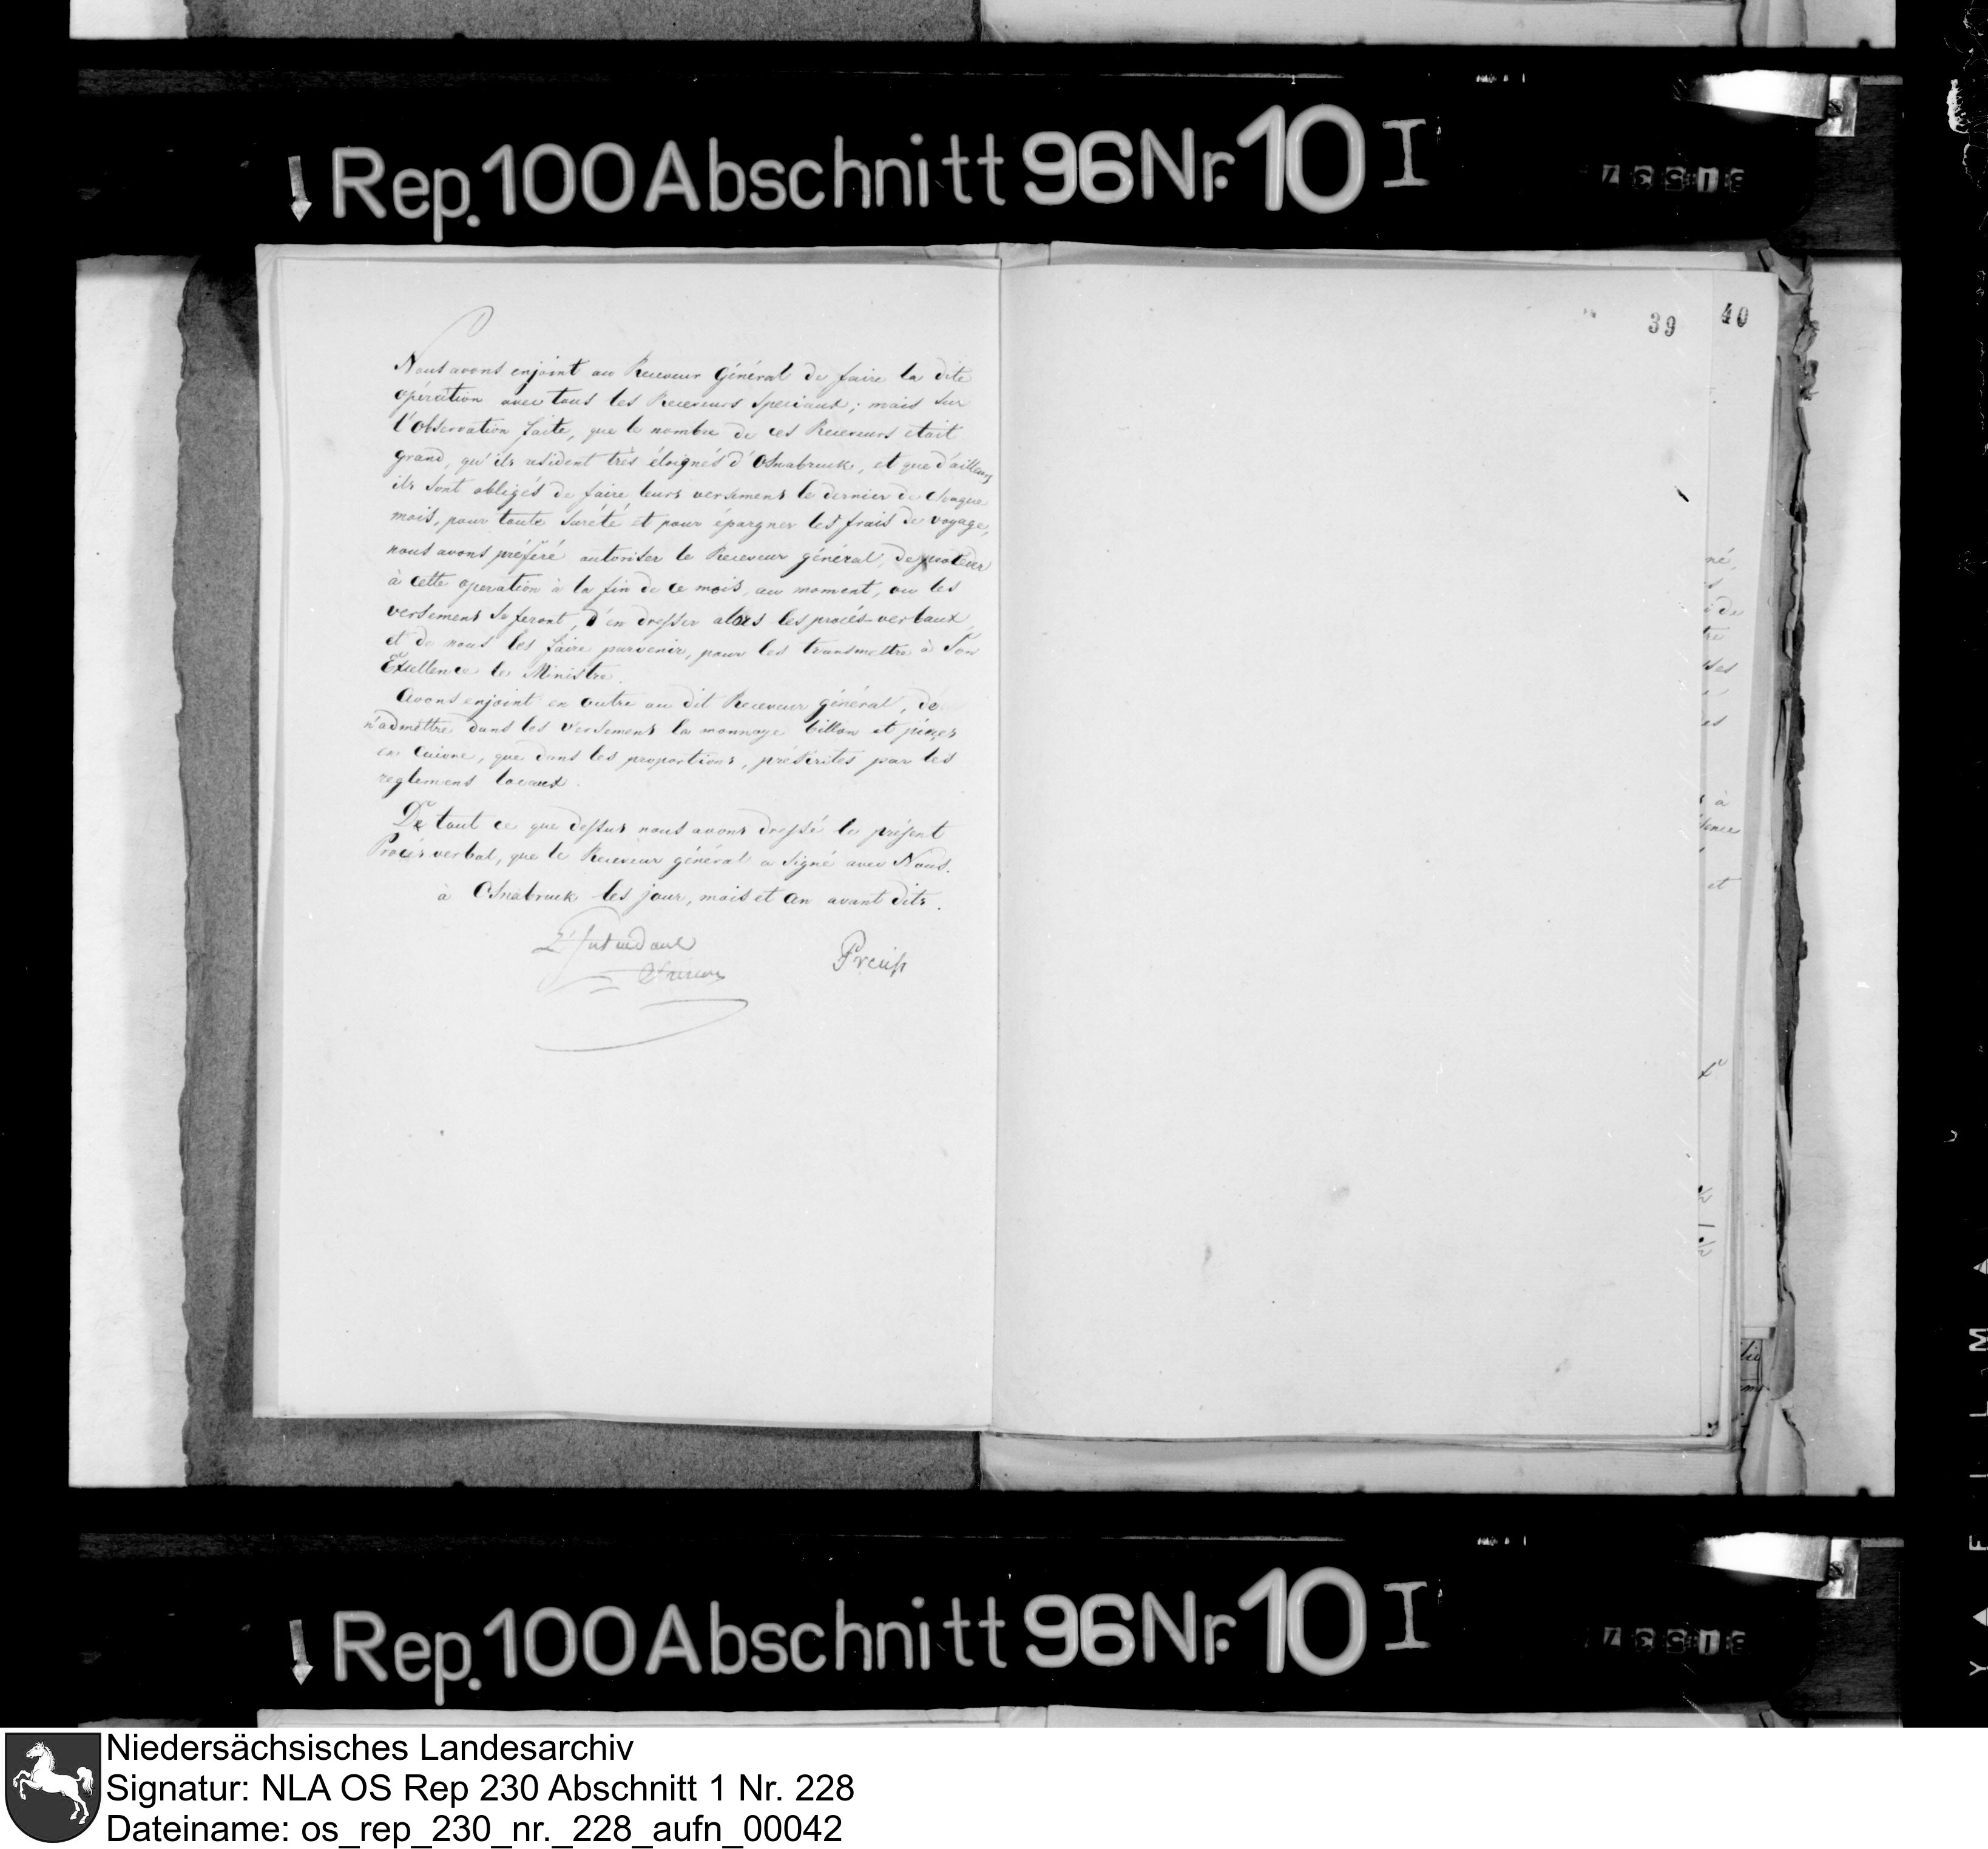 Rep. 100 Abschnitt 96 Nr. 10 I
39
40
Nous avons enjoint au Receveur Général de faire la dite
opération avec tous les Receveurs speciaux; mais sur
l'observation faite, que le nombre de ces Receveurs etait
grand, qu'ils resident très éloignés d'Osnabruck, et que d'ailleurs
ils sont obligés de faire leurs versemens le dernier de chaque
mois, pour toute sûrété et pour épargner les frais de voyage,
nous avons préferé autoriser le Receveur général, de proceder
à cette operation à la fin de ce mois, au moment, ou les
versemens se feront, d'en dresser alors les procés-verbaux,
et de nous les faire parvenir, pour les transmettre à Son
Excellence le Ministre.
Avons enjoint en outre au dit Receveur général, de
n'admettre dans les versemens la monnaye billon et pièces
en cuivre, que dans les proportions, préscrites par les
reglemens locaux.
De tout ce que dessus nous avons dressé le présent
Procés verbal, que le Receveur général a signé avec Nous.
à Osnabruck les jour, mois et an avant dits.
L'Intendant
Preuß
né,
de
tre
ses
es
à
et
Rep. 100 Abschnitt 96 Nr. 10 I
Niedersächsisches Landesarchiv
Signatur: NLA OS Rep 230 Abschnitt 1 Nr. 228
Dateiname: os_rep_230_nr._228_aufn_00042